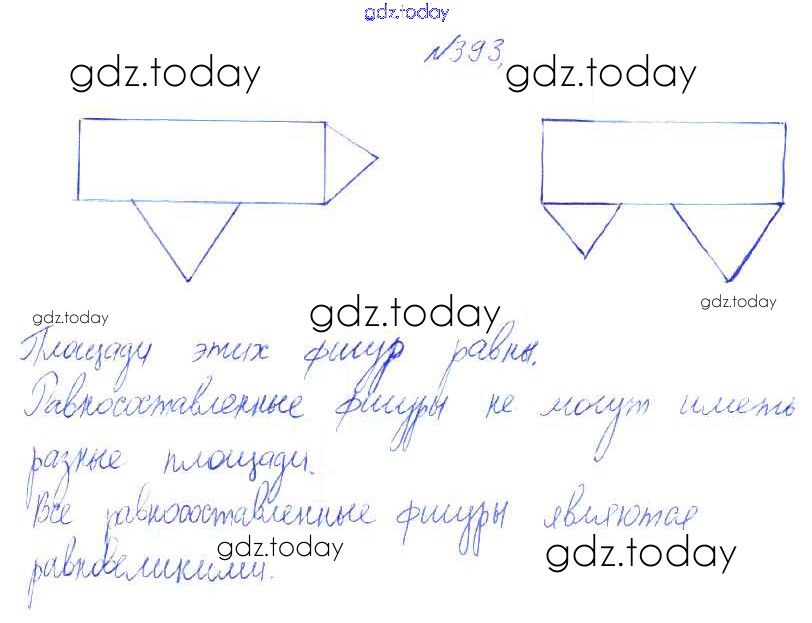 gdz.today
№393,
gdz.today gdz.today
gdz.today
gdz.today gdz.today
Площади этих фигур равны.
Равносоставленные фигуры не могут иметь
разные площади.
Все равносоставленные фигуры являются
gdz.today gdz.today
равновеликими.